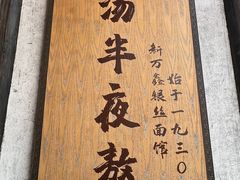 汤半夜熬
始于一九三〇
新万鑫银丝面馆